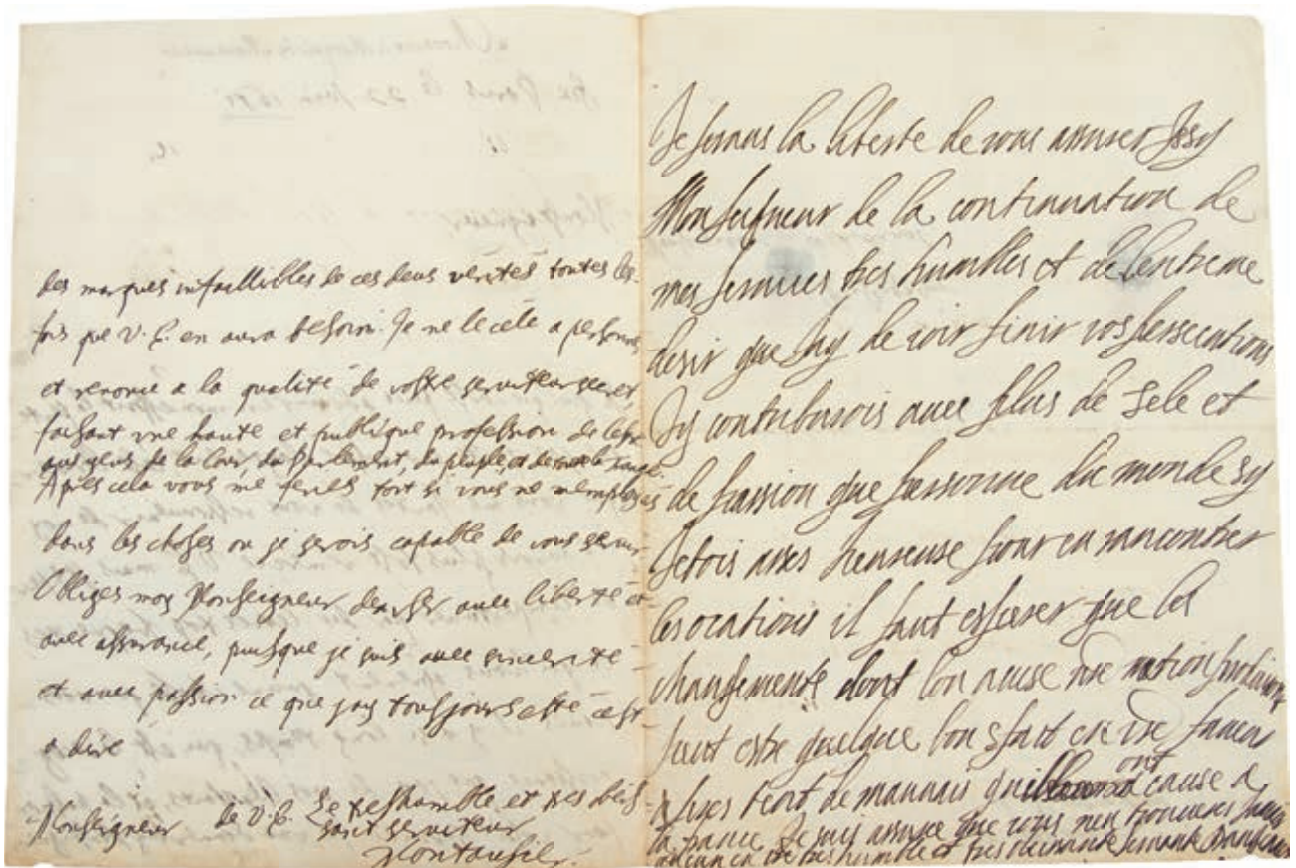 des marques infaillibles de ces deus verités toutes les
fois que V. E. en aura besoin. Je ne le cele a personne
et renonce a la qualité de vostre serviteur secret,
faisant une haute et publique profession de l'estre
aux yeux de la Cour, du Parlement, du peuple, et de
Apres cela vous me feriés tort si vous ne m'employés
dans les choses ou je serois capable de vous servir
Obliges moy Monseigneur d'en user avec liberté et
avec assurance, puisque je suis avec sincerité
et avec passion ce que j'ay tousjours esté c'est
a dire
Monseigneur de V. E. Le tres humble et tres obeis
sant serviteur
Montausier
Je prens la liberté de vous assurer Issy
Monseigneur de la continuation de
mes services tres humbles et de lextreme
desir que jay de voir finir vos persecutions
Jy contriburois avec plus de zele et
de passion que personne du monde sy
Jetois asses heureuse pour en rancontrer
les ocations il faut esperer que les
changements dont lon acuse nre nation
peut estre quelque bon efait en vre faveur
apres tent de mauvais quil ont cause a
la france Je suis assuree que vous nen trouveres jamais
en tres humble et tres servante